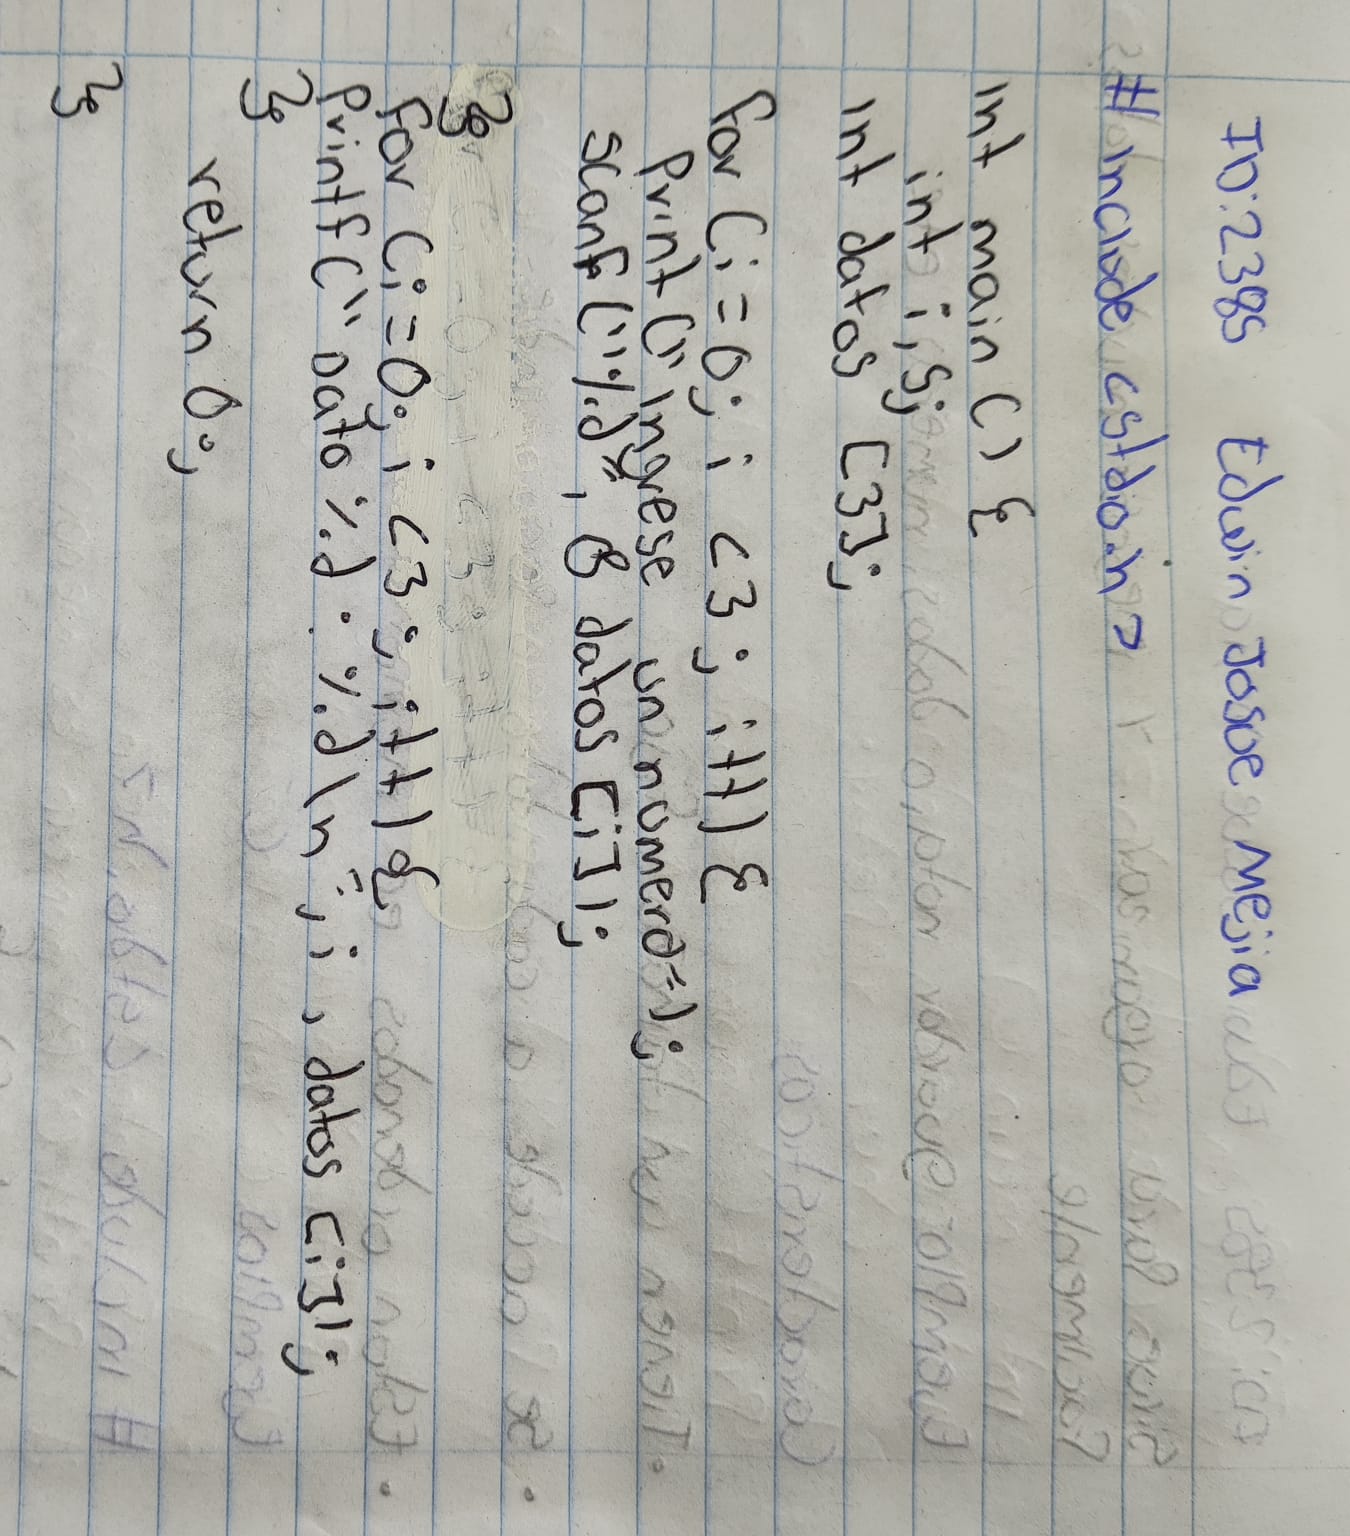 ID:2385 Edwin Josue Mejia
#include <stdio.h>
int main () {
int i, s;
int datos [3];
for (i=0; i <3; i++) {
print ("ingrese un numero=");
scanf ("%d", & datos [i]);
}
for (i=0; i <3; i++) {
printf (" Dato %d: %d \n", i, datos [i]);
}
return 0;
}